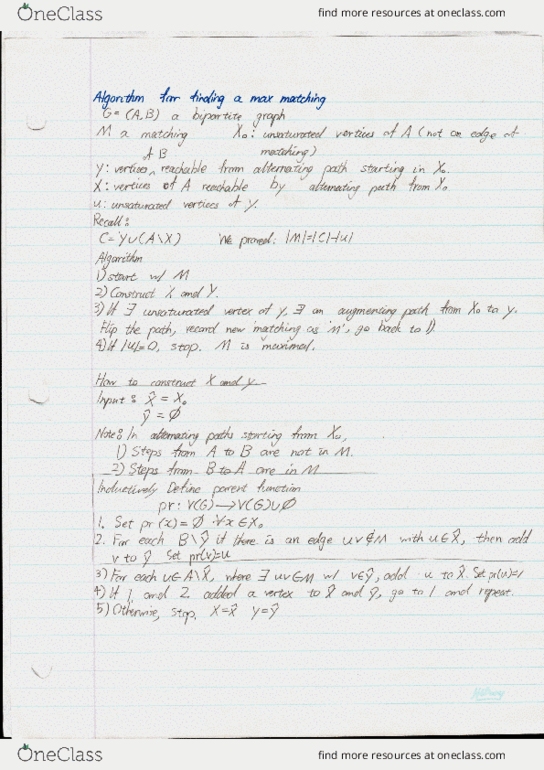 OneClass
find more resources at oneclass.com
Algorithm for finding a max matching
G = (A,B) a bipartite graph
M a matching X₀: unsaturated vertices of A (not an edge of
matching)
of B
Y: vertices ^ reachable from alternating path starting in X₀.
X: vertices of A reachable by alternating path from X₀
U: unsaturated vertices of Y.
Recall:
C = Y∪(A\X) We proved: |M|=|C|-|U|
Algorithm
1) start w/ M
2) Construct X and Y.
3) If ∃ unsaturated vertex of Y, ∃ an augmenting path from X₀ to Y.
Flip the path, record new matching as 'M', go back to 1)
4) If |U|=0, stop. M is maximal.
How to construct X and Y
Input: X̂ = X₀
Ŷ = ∅
Note: In alternating paths starting from X₀,
1) Steps from A to B are not in M.
2) Steps from B to A are in M
Inductively Define parent function
pr: V(G)→V(G)∪∅
1. Set pr(x)=∅ ∀x∈X₀
2. For each B\Ŷ if there is an edge uv∉M with u∈X̂, then add
v to Ŷ Set pr(v)=u
3) For each u∈A\X̂, where ∃ uv∈M w/ v∈Ŷ, add u to X̂. Set pr(u)=v
4) If 1, and 2. added a vertex to X̂ and Ŷ, go to 1 and repeat.
5) Otherwise, stop. X=X̂ Y=Ŷ
OneClass
find more resources at oneclass.com